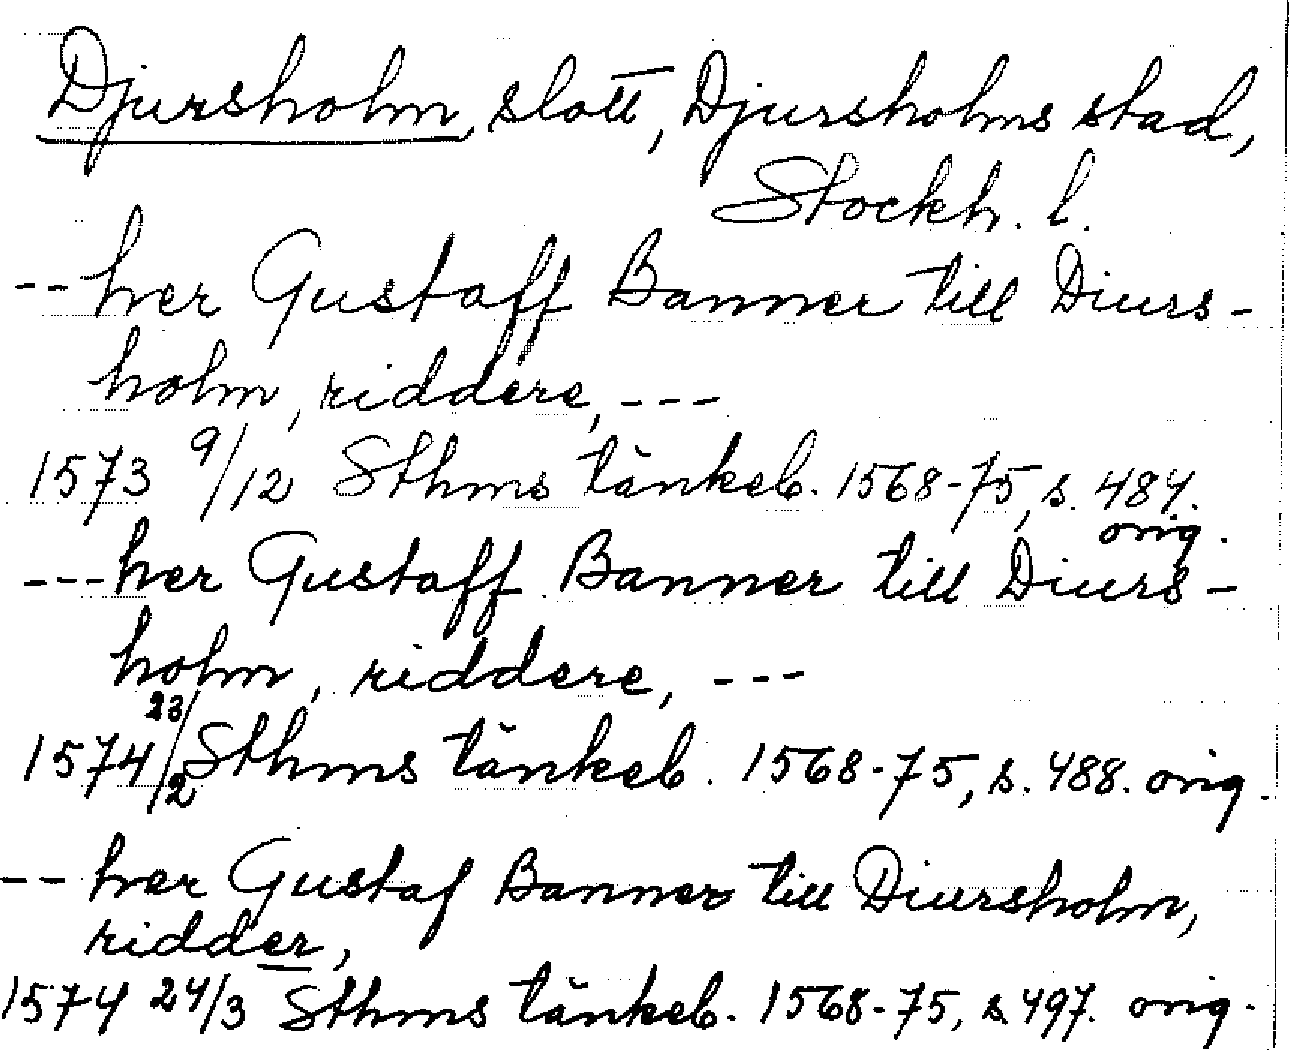 Djursholm, slott, Djursholms stad,
Stockh. l.
-- her Gustaff Banner till Diurs-
holm, riddere, ---
1573 9/12 Sthms tänkeb. 1568-75, s. 484.
orig.
--- her Gustaff Banner till Diurs-
holm, riddere, ---
1574 23/2 Sthms tänkeb. 1568-75, s. 488. orig.
-- her Gustaf Banner till Diursholm,
ridder,
1574 24/3 Sthms tänkeb. 1568-75, s. 497. orig.